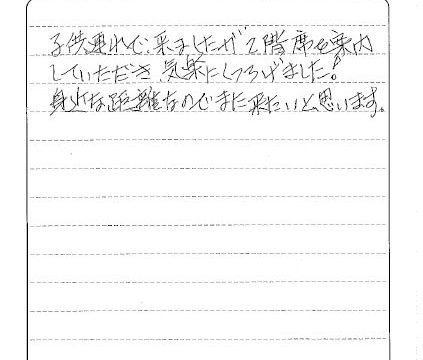 子供連れで来ましたが2階席を案内
していただき気楽にしつろげました!
身近な距離なのでまた来たいと思います。